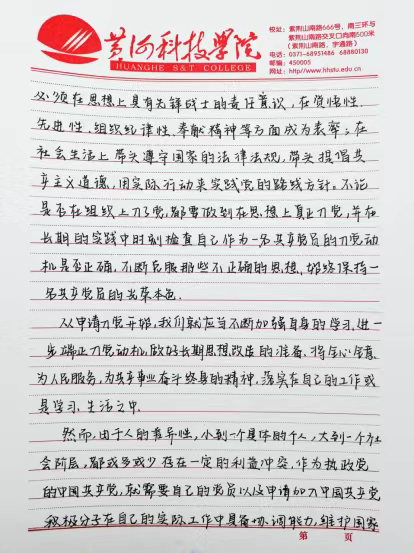 黄河科技学院
HUANGHE S&T COLLEGE
地址：紫荆山南路666号，南三环与
紫荆山南路交叉口向南500米
（紫荆山南路，宇通路）
电话：0371-68951486 68880130
邮编：450005
网址：http://www.hhstu.edu.cn
必须在思想上具有先锋战士的责任意识，在觉悟性、
先进性、组织纪律性、奉献精神等方面成为表率；在
社会生活上带头遵守国家的法律法规，带头提倡共
产主义道德，用实际行动来实践党的路线方针。不论
是否在组织上入了党，都要做到在思想上真正入党，并在
长期的实践中时刻检查自己作为一名共产党员的入党动
机是否正确，不断克服那些不正确的思想，始终保持一
名共产党员的光荣本色。
从申请入党开始，我们就应当不断加强自身的学习，进一
步端正入党动机，做好长期思想改造的准备。将全心全意
为人民服务，为共产事业奋斗终身的精神，落实在自己的工作或
是学习、生活之中。
然而，由于人的差异性，小到一个具体的个人，大到一个社
会阶层，都或多或少存在一定的利益冲突，作为执政党
的中国共产党，就需要自己的党员以及申请加入中国共产党
积极分子在自己的实际工作中具备协调能力，维护国家
第 页